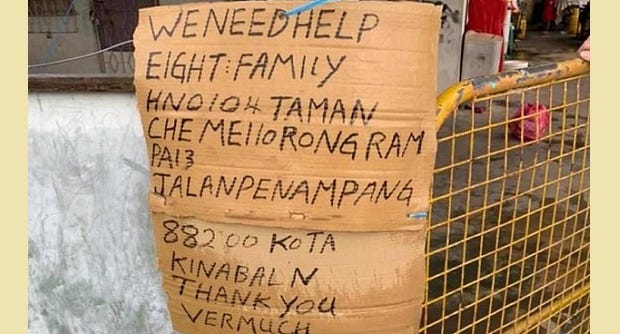 WE NEED HELP
EIGHT:FAMILY
HNO104 TAMAN
CHE MEI 10 RONG RAM
PAI3
JALANPENAMPANG
88200 KOTA
KINABALN
THANK YOU
VERMUCH